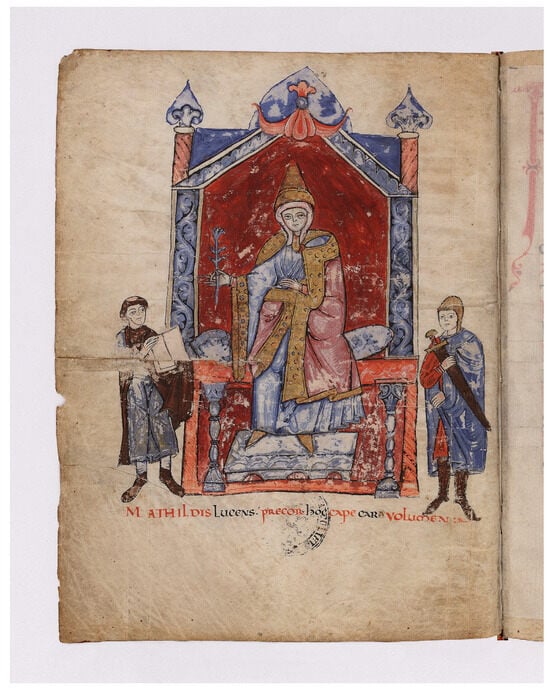 MATHILDIS LUCENS. PRECOR hoc CAPE CARA VOLUMEN